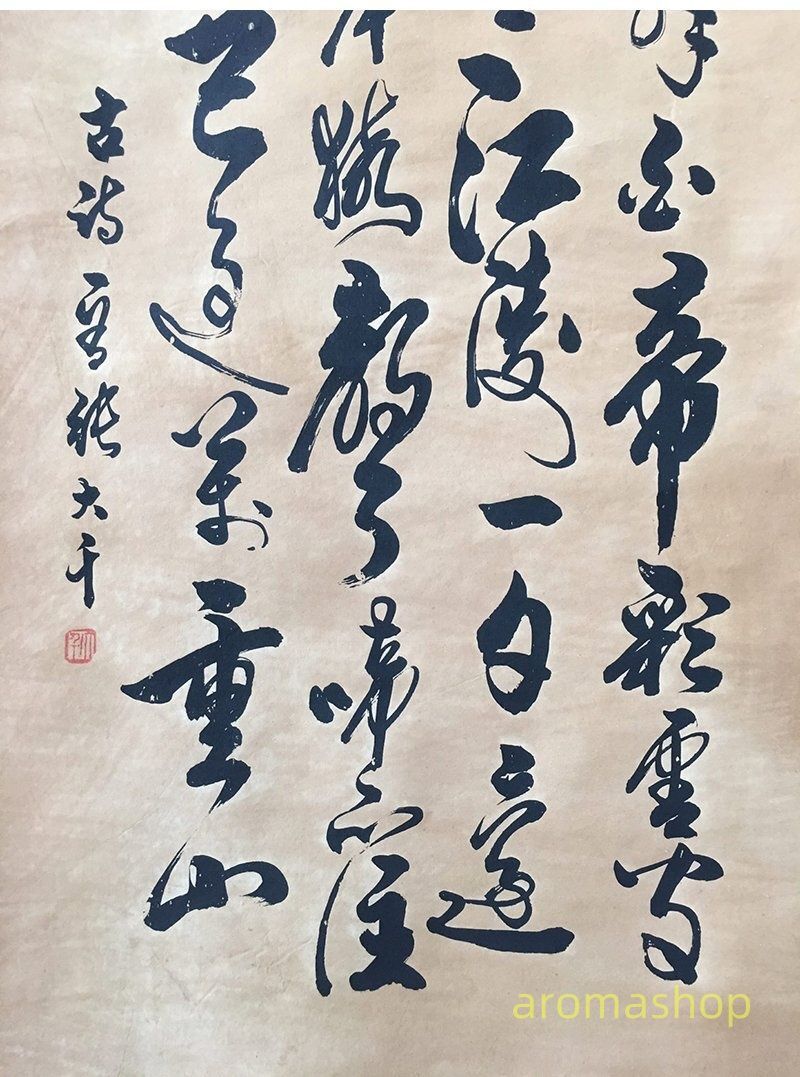 白帝彩雲間
江陵一日還
猿聲啼不住
已過萬重山
古詩一首張大千
aromashop